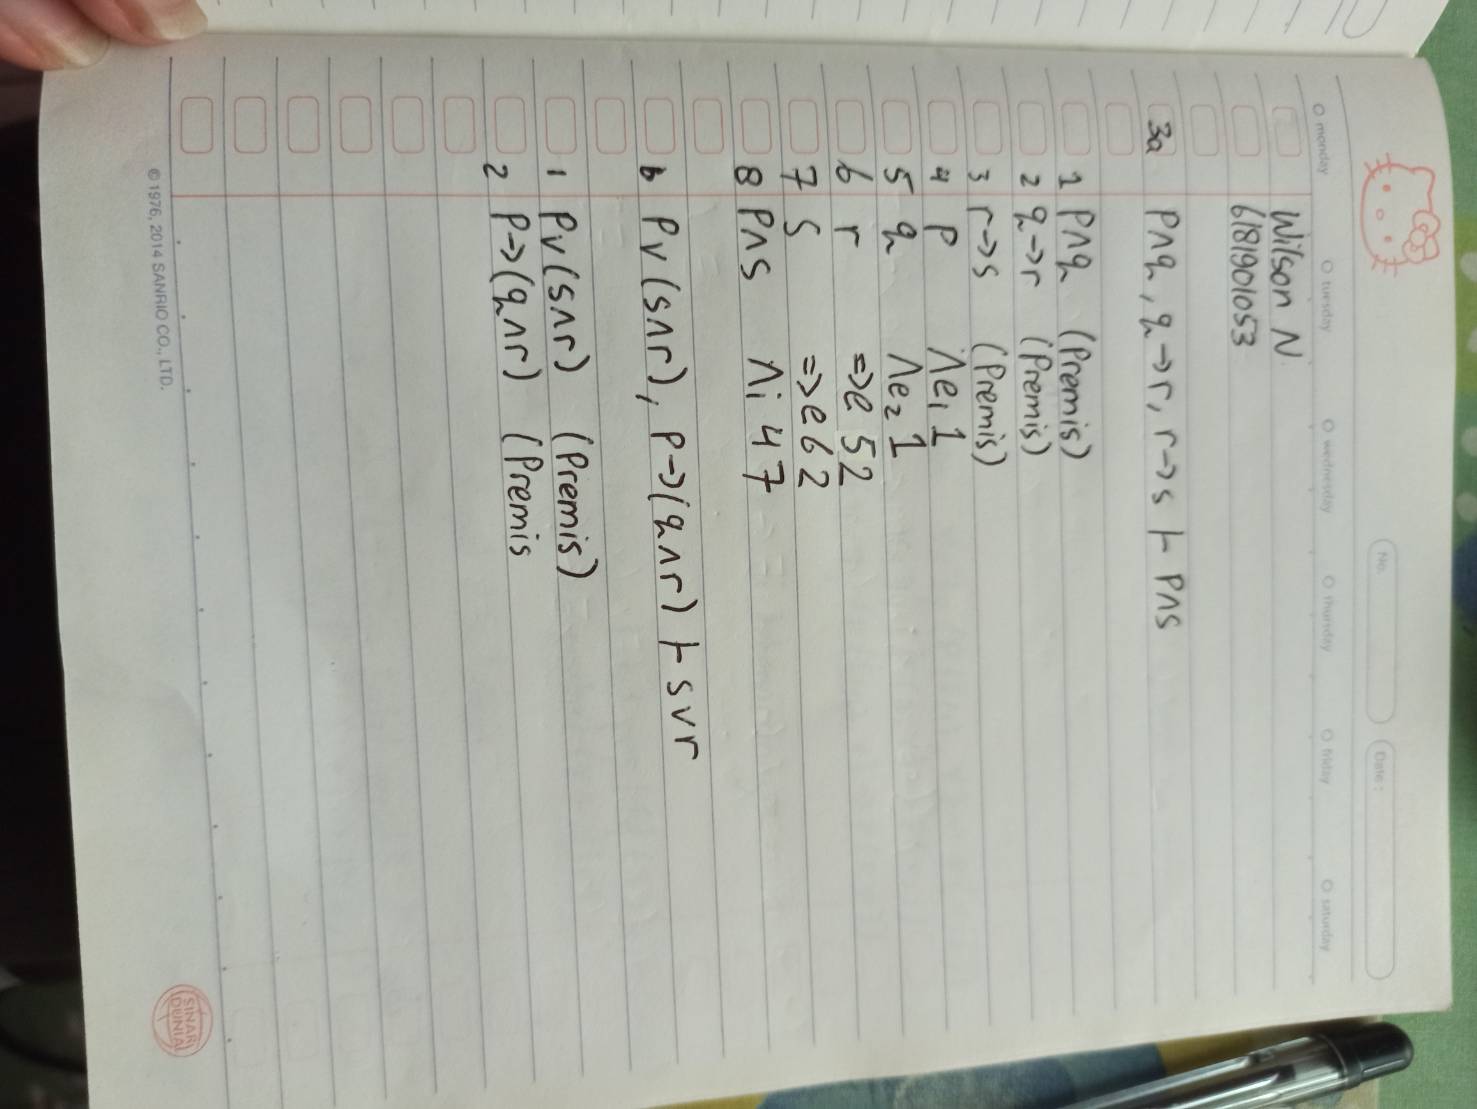 No.
Date:
monday tuesday wednesday thursday friday saturday
Wilson N
6181901053
3a p∧q, q→r, r→s ⊢ p∧s
1 p∧q (Premis)
2 q→r (Premis)
3 r→s (Premis)
4 p ∧e₁ 1
5 q ∧e₂ 1
6 r =>e 5 2
7 s =>e 6 2
8 p∧s ∧i 4 7
b p∨(s∧r), p→(q∧r) ⊢ s∨r
1 p∨(s∧r) (Premis)
2 p→(q∧r) (Premis
© 1976, 2014 SANRIO CO., LTD.
SINAR DUNIA